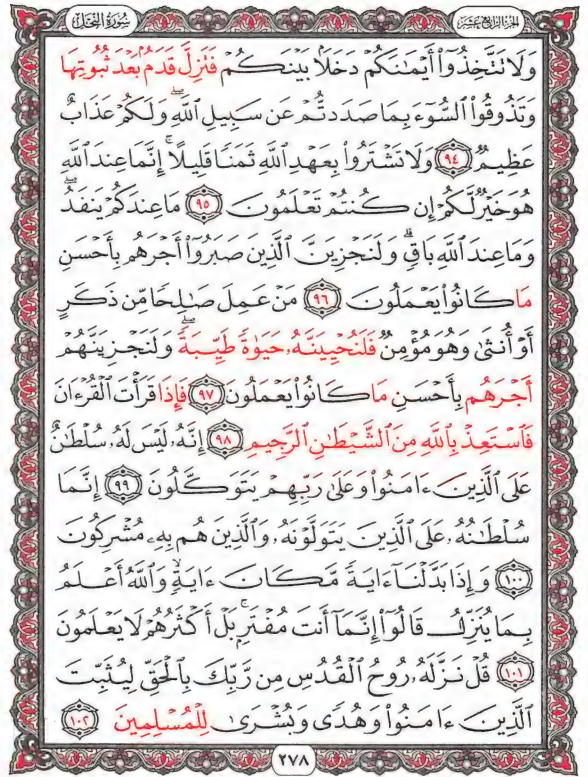 سُورَةُ النَّحْل الجزء الرابع عشر
وَلَا تَتَّخِذُوٓا۟ أَيْمَٰنَكُمْ دَخَلًۢا بَيْنَكُمْ فَتَزِلَّ قَدَمٌۢ بَعْدَ ثُبُوتِهَا
وَتَذُوقُوا۟ ٱلسُّوٓءَ بِمَا صَدَدتُّمْ عَن سَبِيلِ ٱللَّهِ ۖ وَلَكُمْ عَذَابٌ
عَظِيمٌ ٩٤ وَلَا تَشْتَرُوا۟ بِعَهْدِ ٱللَّهِ ثَمَنًا قَلِيلًا ۚ إِنَّمَا عِندَ ٱللَّهِ
هُوَ خَيْرٌ لَّكُمْ إِن كُنتُمْ تَعْلَمُونَ ٩٥ مَا عِندَكُمْ يَنفَدُ ۖ
وَمَا عِندَ ٱللَّهِ بَاقٍ ۗ وَلَنَجْزِيَنَّ ٱلَّذِينَ صَبَرُوٓا۟ أَجْرَهُم بِأَحْسَنِ
مَا كَانُوا۟ يَعْمَلُونَ ٩٦ مَنْ عَمِلَ صَٰلِحًا مِّن ذَكَرٍ
أَوْ أُنثَىٰ وَهُوَ مُؤْمِنٌ فَلَنُحْيِيَنَّهُۥ حَيَوٰةً طَيِّبَةً ۖ وَلَنَجْزِيَنَّهُمْ
أَجْرَهُم بِأَحْسَنِ مَا كَانُوا۟ يَعْمَلُونَ ٩٧ فَإِذَا قَرَأْتَ ٱلْقُرْءَانَ
فَٱسْتَعِذْ بِٱللَّهِ مِنَ ٱلشَّيْطَٰنِ ٱلرَّجِيمِ ٩٨ إِنَّهُۥ لَيْسَ لَهُۥ سُلْطَٰنٌ
عَلَى ٱلَّذِينَ ءَامَنُوا۟ وَعَلَىٰ رَبِّهِمْ يَتَوَكَّلُونَ ٩٩ إِنَّمَا
سُلْطَٰنُهُۥ عَلَى ٱلَّذِينَ يَتَوَلَّوْنَهُۥ وَٱلَّذِينَ هُم بِهِۦ مُشْرِكُونَ
١٠٠ وَإِذَا بَدَّلْنَآ ءَايَةً مَّكَانَ ءَايَةٍ ۙ وَٱللَّهُ أَعْلَمُ
بِمَا يُنَزِّلُ قَالُوٓا۟ إِنَّمَآ أَنتَ مُفْتَرٍۭ ۚ بَلْ أَكْثَرُهُمْ لَا يَعْلَمُونَ
١٠١ قُلْ نَزَّلَهُۥ رُوحُ ٱلْقُدُسِ مِن رَّبِّكَ بِٱلْحَقِّ لِيُثَبِّتَ
ٱلَّذِينَ ءَامَنُوا۟ وَهُدًى وَبُشْرَىٰ لِلْمُسْلِمِينَ ١٠٢
٢٧٨